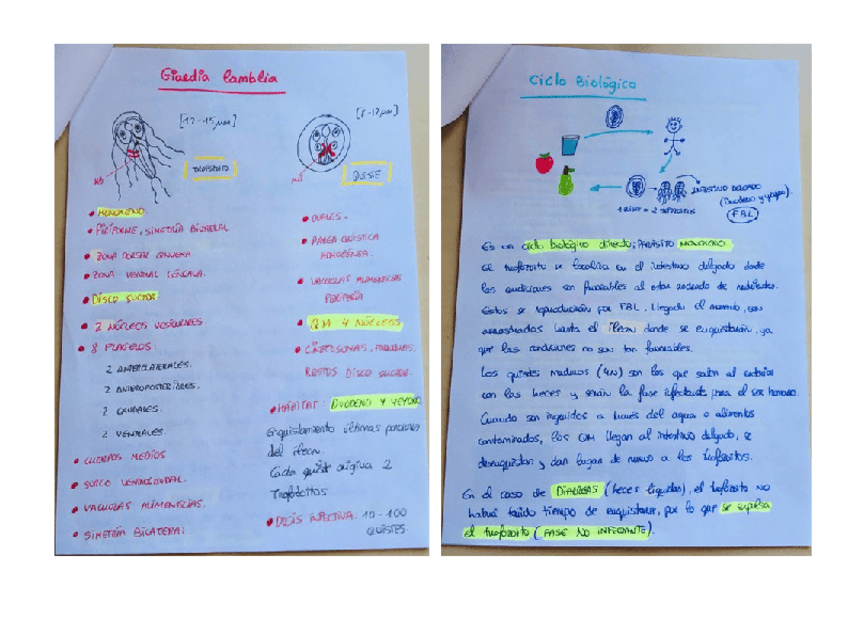 Giardia lamblia
[12-15 µm]
TROFOZOITO
[8-12 µm]
QUISTE
• MONOXENO.
• PIRIFORME, SIMETRÍA BILATERAL
• ZONA DORSAL CONVEXA.
• ZONA VENTRAL CÓNCAVA.
• DISCO SUCTOR.
• 2 NÚCLEOS VESICULARES.
• 8 FLAGELOS:
2 ANTEROLATERALES.
2 ANTEROPOSTERIORES.
2 CAUDALES.
2 VENTRALES.
• CUERPOS MEDIOS
• SURCO VENTROCAUDAL.
• VACUOLAS ALIMENTICIAS.
• SIMETRÍA BILATERAL.
• OVALES.
• PARED QUÍSTICA
HOMOGÉNEA.
• VACUOLAS ALIMENTICIAS
PERIFERIA
• QM 4 NÚCLEOS
• CINETOSOMAS,
RESTOS DISCO SUCTOR.
• HÁBITAT: DUODENO Y YEYUNO.
Enquistamiento últimas porciones
del íleon.
Cada quiste origina 2
Trofozoitos
• DOSIS INFECTIVA: 10-100
QUISTES.
Ciclo Biológico
1 QUISTE = 2 TROFOZOITOS
INTESTINO DELGADO
(Duodeno y yeyuno).
FBL
Es un ciclo biológico directo; PARÁSITO MONOXENO.
El trofozoito se localiza en el intestino delgado donde
las condiciones son favorables al estar rodeado de nutrientes.
Estos se reproducirán por FBL. Llegado el momento, son
arrastrados hasta el íleon donde se enquistarán, ya
que las condiciones no son tan favorables.
Los quistes maduros (4N) son los que salen al exterior
con las heces y serán la fase infectante para el ser humano.
Cuando son ingeridos a través del agua o alimentos
contaminados, los QM llegan al intestino delgado, se
desenquistan y dan lugar de nuevo a los trofozoitos.
En el caso de DIARREAS (heces líquidas), el trofozoito no
habrá tenido tiempo de enquistarse, por lo que se expulsa
el trofozoito (FASE NO INFECTANTE).